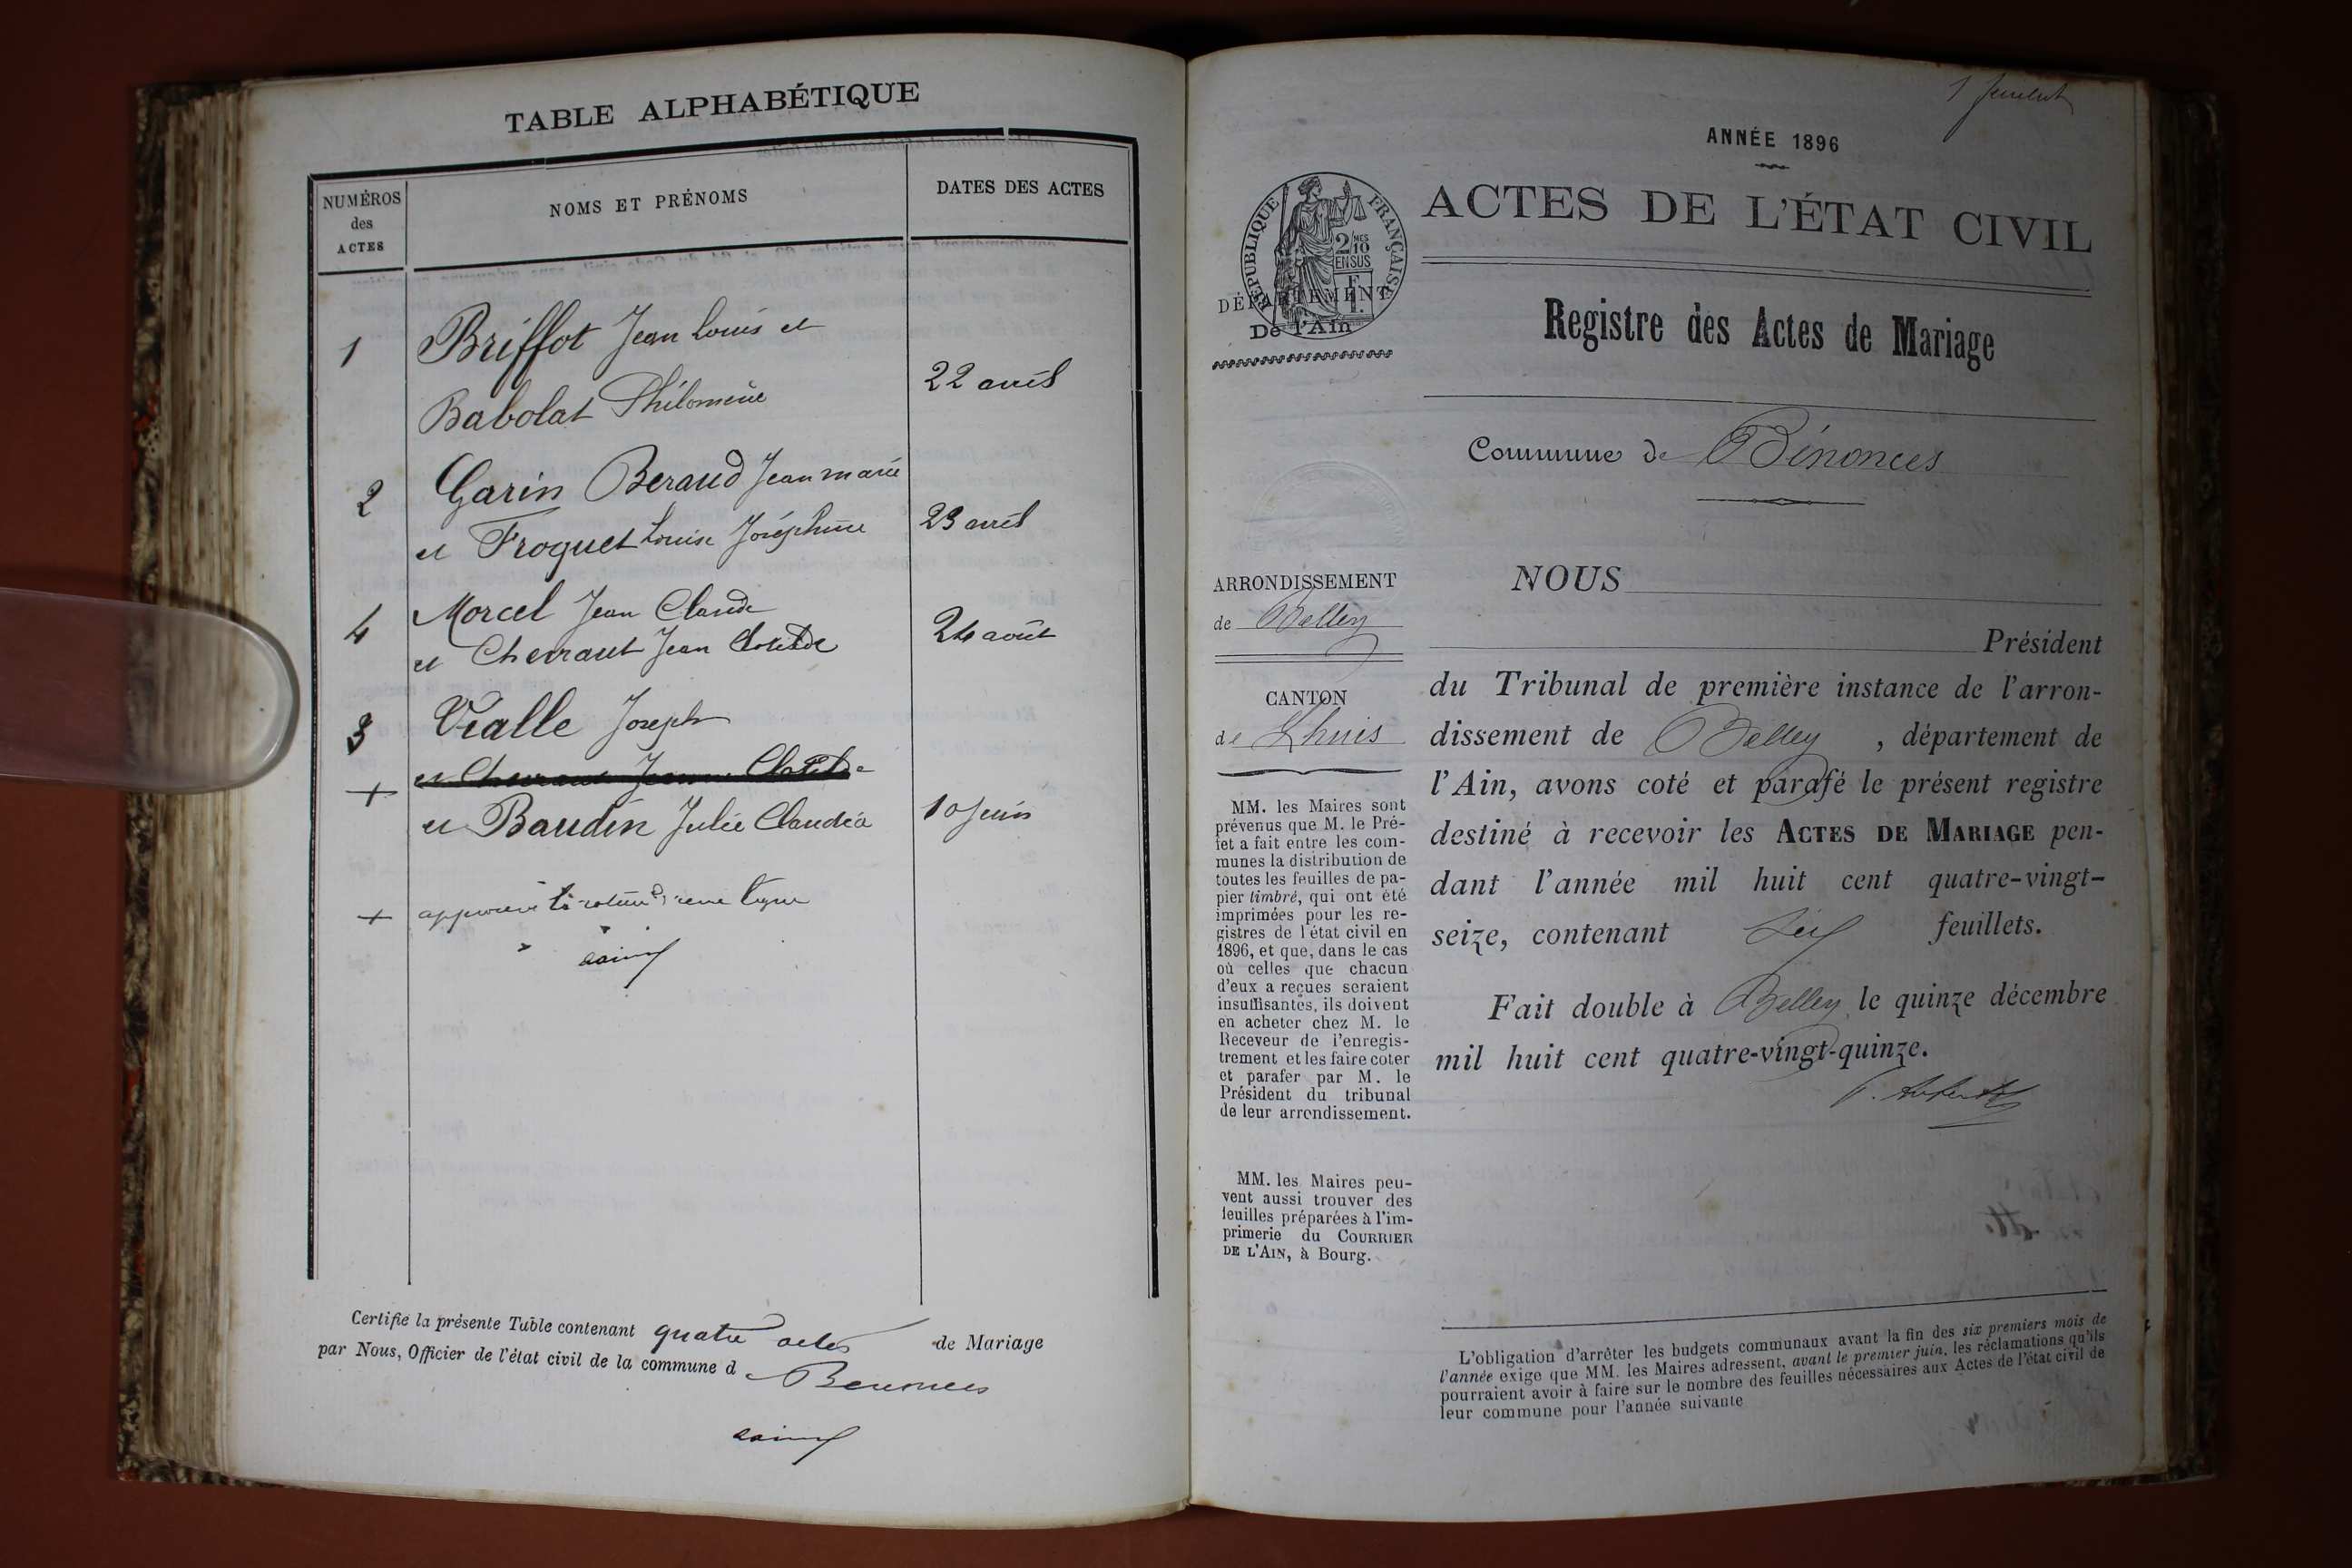 TABLE ALPHABÉTIQUE
NUMÉROS
des
ACTES
NOMS ET PRÉNOMS
DATES DES ACTES
1
Briffot Jean Louis et
Babolat Philomène
22 avril
2
Garin Beraud Jean marie
et Froquet Louise Joséphine
23 avril
4
Morcel Jean Claude
et Chevraut Jean Clotilde
24 août
3
Vialle Joseph
et Chevraut Jeanne Clotilde
+
et Baudin Julie Claudia
10 Juin
+
Certifie la présente Table contenant quatre actes de Mariage
par Nous, Officier de l'état civil de la commune d Benonces
1 feuillet
ANNÉE 1896
RÉPUBLIQUE FRANÇAISE
2 MES
10
EN SUS
ACTES DE L'ÉTAT CIVIL
DÉPARTEMENT
De l'Ain
Registre des Actes de Mariage
Commune de Bénonces
ARRONDISSEMENT
de Belley
CANTON
de Lhuis
MM. les Maires sont
prévenus que M. le Pré-
fet a fait entre les com-
munes la distribution de
toutes les feuilles de pa-
pier timbré, qui ont été
imprimées pour les re-
gistres de l'état civil en
1896, et que, dans le cas
où celles que chacun
d'eux a reçues seraient
insuffisantes, ils doivent
en acheter chez M. le
Receveur de l'enregis-
trement et les faire coter
et parafer par M. le
Président du tribunal
de leur arrondissement.
MM. les Maires peu-
vent aussi trouver des
feuilles préparées à l'im-
primerie du COURRIER
DE L'AIN, à Bourg.
NOUS
Président
du Tribunal de première instance de l'arron-
dissement de Belley, département de
l'Ain, avons coté et parafé le présent registre
destiné à recevoir les ACTES DE MARIAGE pen-
dant l'année mil huit cent quatre-vingt-
seize, contenant feuillets.
Fait double à Belley, le quinze décembre
mil huit cent quatre-vingt-quinze.
L'obligation d'arrêter les budgets communaux avant la fin des six premiers mois de
l'année exige que MM. les Maires adressent, avant le premier juin, les réclamations qu'ils
pourraient avoir à faire sur le nombre des feuilles nécessaires aux Actes de l'état civil de
leur commune pour l'année suivante